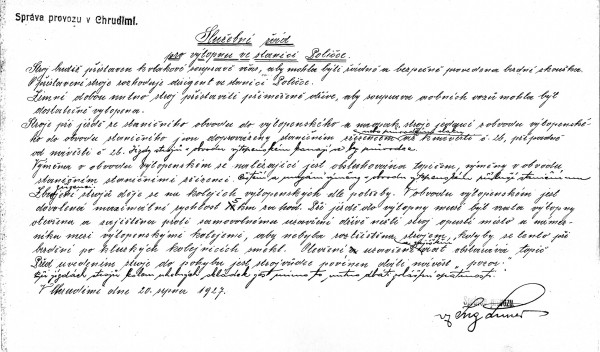 Správa provozu v Chrudimi.
Služební řád
pro výtopnu ve stanici Poličce.
Stroj budiž přistaven k vlakové soupravě včas, aby mohla býti řádně a bezpečně provedena brzdní zkouška.
O přistavení stroje rozhoduje dirigent ve stanici Poličce.
Zimní dobou nutno stroj přistaviti přiměřeně dříve, aby souprava osobních vozů mohla být
dostatečně vytopena.
Stroje při jízdě ze staničního obvodu do výtopenského a naopak stroje jedoucí z obvodu výtopenské-
ho do obvodu staničního jsou doprovázeny staničním zřízencem
na návěstí č. 26. Jízdy strojů v obvodu výtopenském konají se bez průvodce.
Výměna v obvodu výtopenském se nalézající jest obsluhována topičem, výměny v obvodu
staničním staničními zřízenci.
Zbrojení strojů děje se na kolejích výtopenských dle potřeby. V obvodu výtopenském jest
dovolena maximální rychlost 5 km za hod. Při jízdě do výtopny musí být vrata výtopny
otevřena a zajištěna proti samovolnému uzavření dříve nežli stroj opustí místo u náměz-
níku mezi výtopenskými kolejemi, aby nebyla rozbita strojem, kdyby se tento při
brzdění po kluzkých kolejnicích smekl. Otevření uzavírání vrat obstarává topič
Před uvedením stroje do pohybu jest strojvůdce povinen dáti návěst „pozor“
Při jízdách strojů kolem uhelných skládek jest nutno dbáti zvláštní opatrnosti.
V Chrudimi dne 20. srpna 1927.